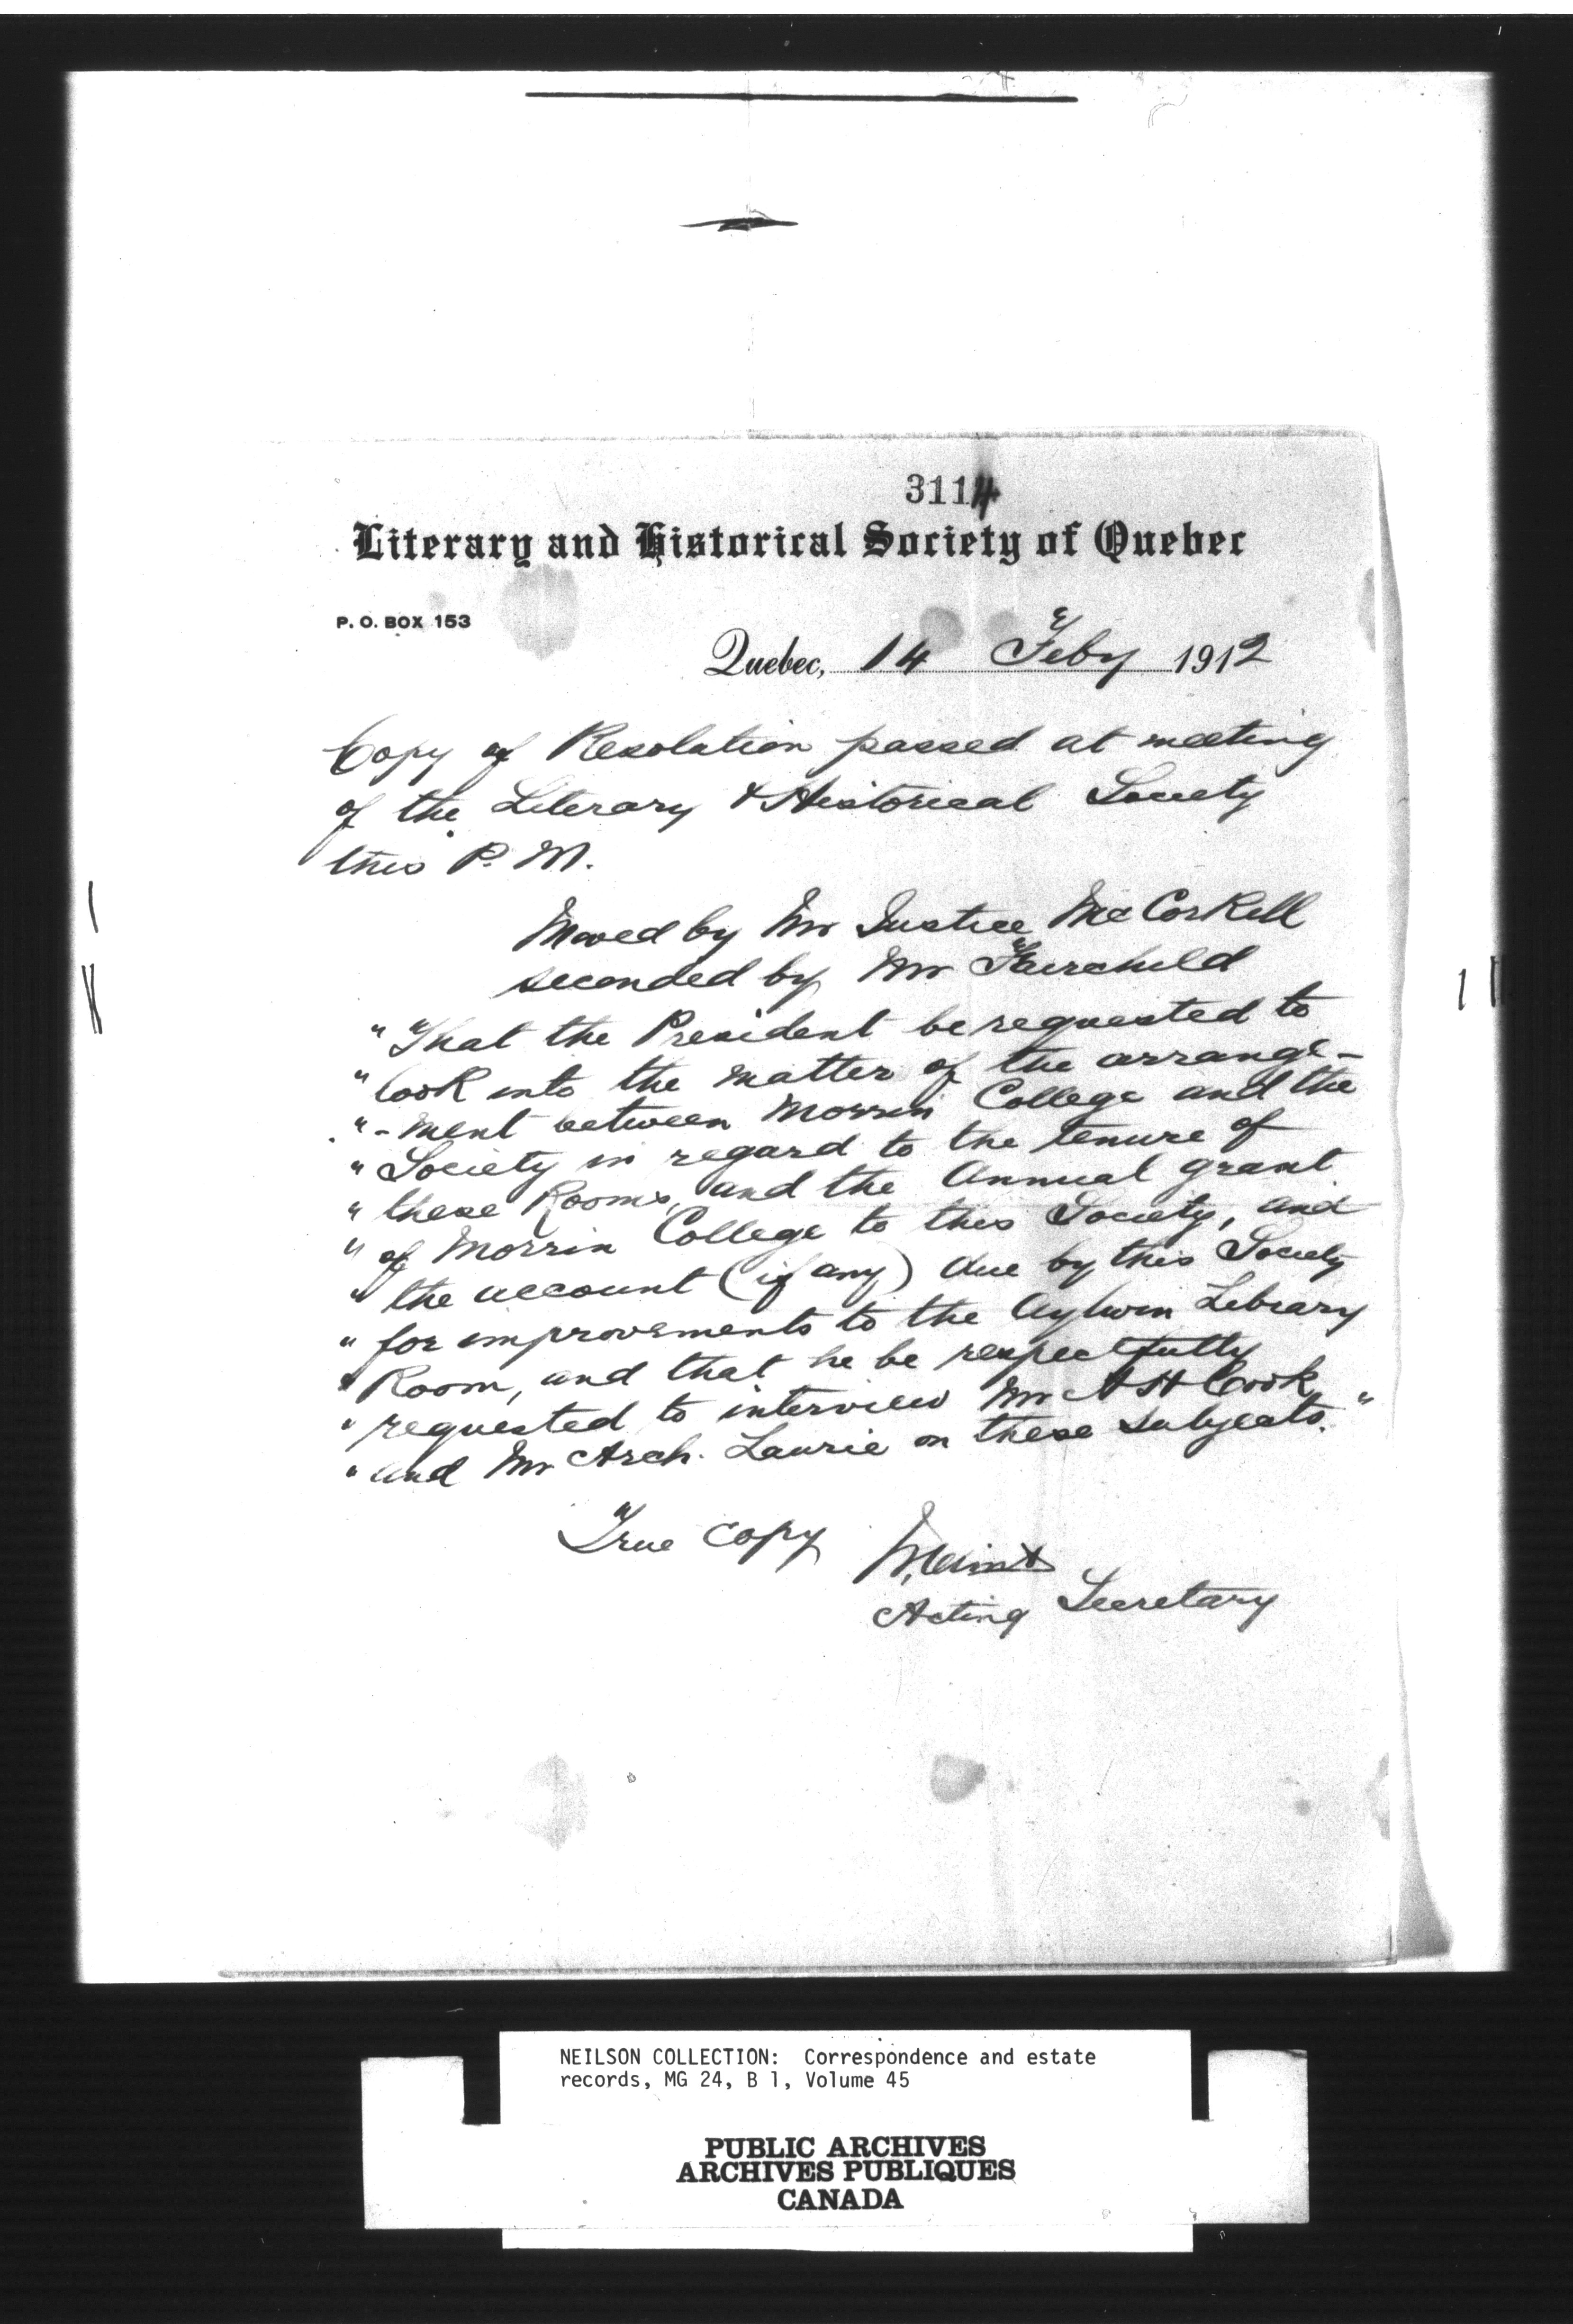 3114
Literary and Historical Society of Quebec
P. O. BOX 153
Quebec, 14 Feby 1912
Copy of Resolution passed at meeting
of the Literary & Historical Society
this P. M.
Moved by Mr Justice McCorkill
seconded by Mr Fairchild
"That the President be requested to
"look into the matter of the arrange-
"-ment between Morrin College and the
"Society in regard to the tenure of
"these Rooms, and the Annual grant
"of Morrin College to this Society, and
"the account (if any) due by this Society
"for improvements to the Aylwin Library
"Room, and that he be respectfully
"requested to interview Mr A H Cook
"and Mr Arch. Laurie on these subjects."
True Copy
Acting Secretary
NEILSON COLLECTION: Correspondence and estate
records, MG 24, B 1, Volume 45
PUBLIC ARCHIVES
ARCHIVES PUBLIQUES
CANADA